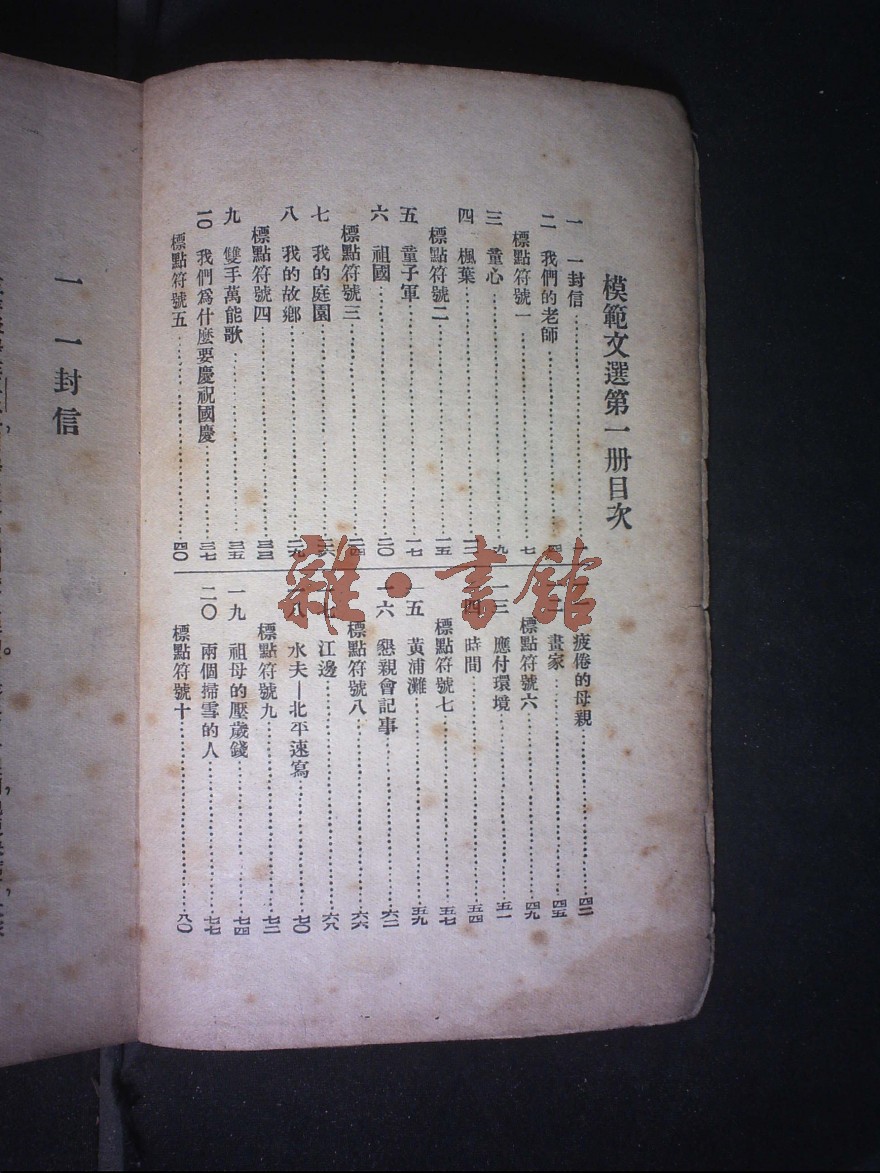 模範文選第一册目次
一 一封信 一
二 我們的老師 四
標點符號一 七
三 童心 九
四 楓葉 一二
標點符號二 一五
五 童子軍 一七
六 祖國 二〇
標點符號三 二四
七 我的庭園 二六
八 我的故鄉 二九
標點符號四 三三
九 雙手萬能歌 三五
一〇 我們爲什麼要慶祝國慶 三七
標點符號五 四〇
疲倦的母親 四二
畫家 四五
標點符號六 四九
一三 應付環境 五一
一四 時間 五四
標點符號七 五七
一五 黃浦灘 五九
一六 懇親會記事 六二
標點符號八 六六
一七 江邊 六八
一八 水夫—北平速寫 七〇
標點符號九 七二
一九 祖母的壓歲錢 七四
二〇 兩個掃雪的人 七七
標點符號十 八〇
一 一封信
雜·書館